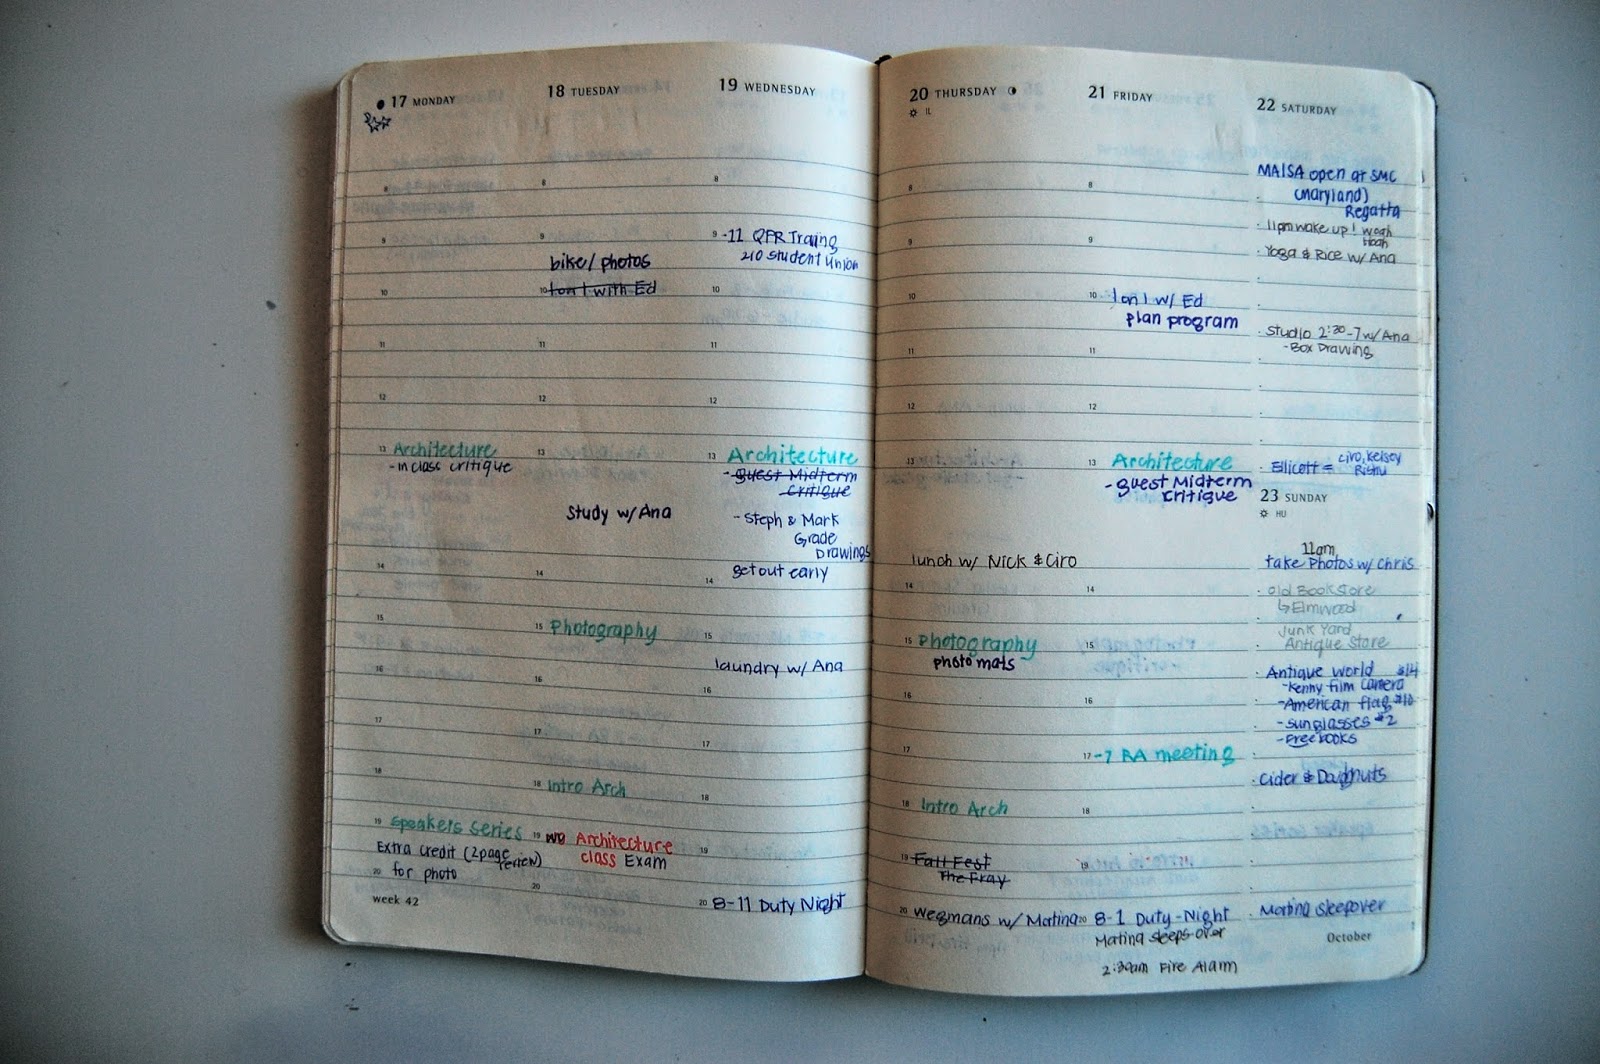 17 MONDAY
8
9
10
11
12
13 Architecture
- in class critique
14
15
16
17
18
19 Speakers Series
Extra credit (2page
review)
20 for photo
week 42
18 TUESDAY
8
9
bike/photos
10 1 on 1 with Ed
11
12
13
Study w/Ana
14
15 Photography
16
17
18 Intro Arch
19 Architecture
class Exam
20
19 WEDNESDAY
8
9 -11 QPR Traing
210 Student Union
10
11
12
13 Architecture
- guest Midterm
Critique
- Steph & Mark
Grade
Drawings
14 get out early
15
laundry w/ Ana
16
17
18
19
20 8-11 Duty Night
20 THURSDAY
IL
8
9
10
11
12
13
lunch w/ Nick & Ciro
14
15 Photography
photo mats
16
17
18 Intro Arch
19 Fall Fest
The Fray
20 Wegmans w/ Martina
21 FRIDAY
8
9
10 1 on 1 w/ Ed
plan program
11
12
13 Architecture
- guest Midterm
critique
14
15
16
17 -7 RA meeting
18
19
20 8-1 Duty-Night
Matina sleeps over
2:30am Fire Alarm
22 SATURDAY
MAISA open at SMC
(Maryland)
Regatta
11pm wake up! woah
Yoga & Rice w/ Ana
Studio 2:30-7 w/ Ana
- Box Drawing
Ellicott = Ciro, Kelsey
Rishu
23 SUNDAY
HU
11am
take Photos w/ Chris
old Bookstore
↳Elmwood
Junk Yard
Antique Store
Antique world $14
- Kenny film camera
- American flag $10
- sunglasses $2
- Free books
Cider &
Martina sleepover
October